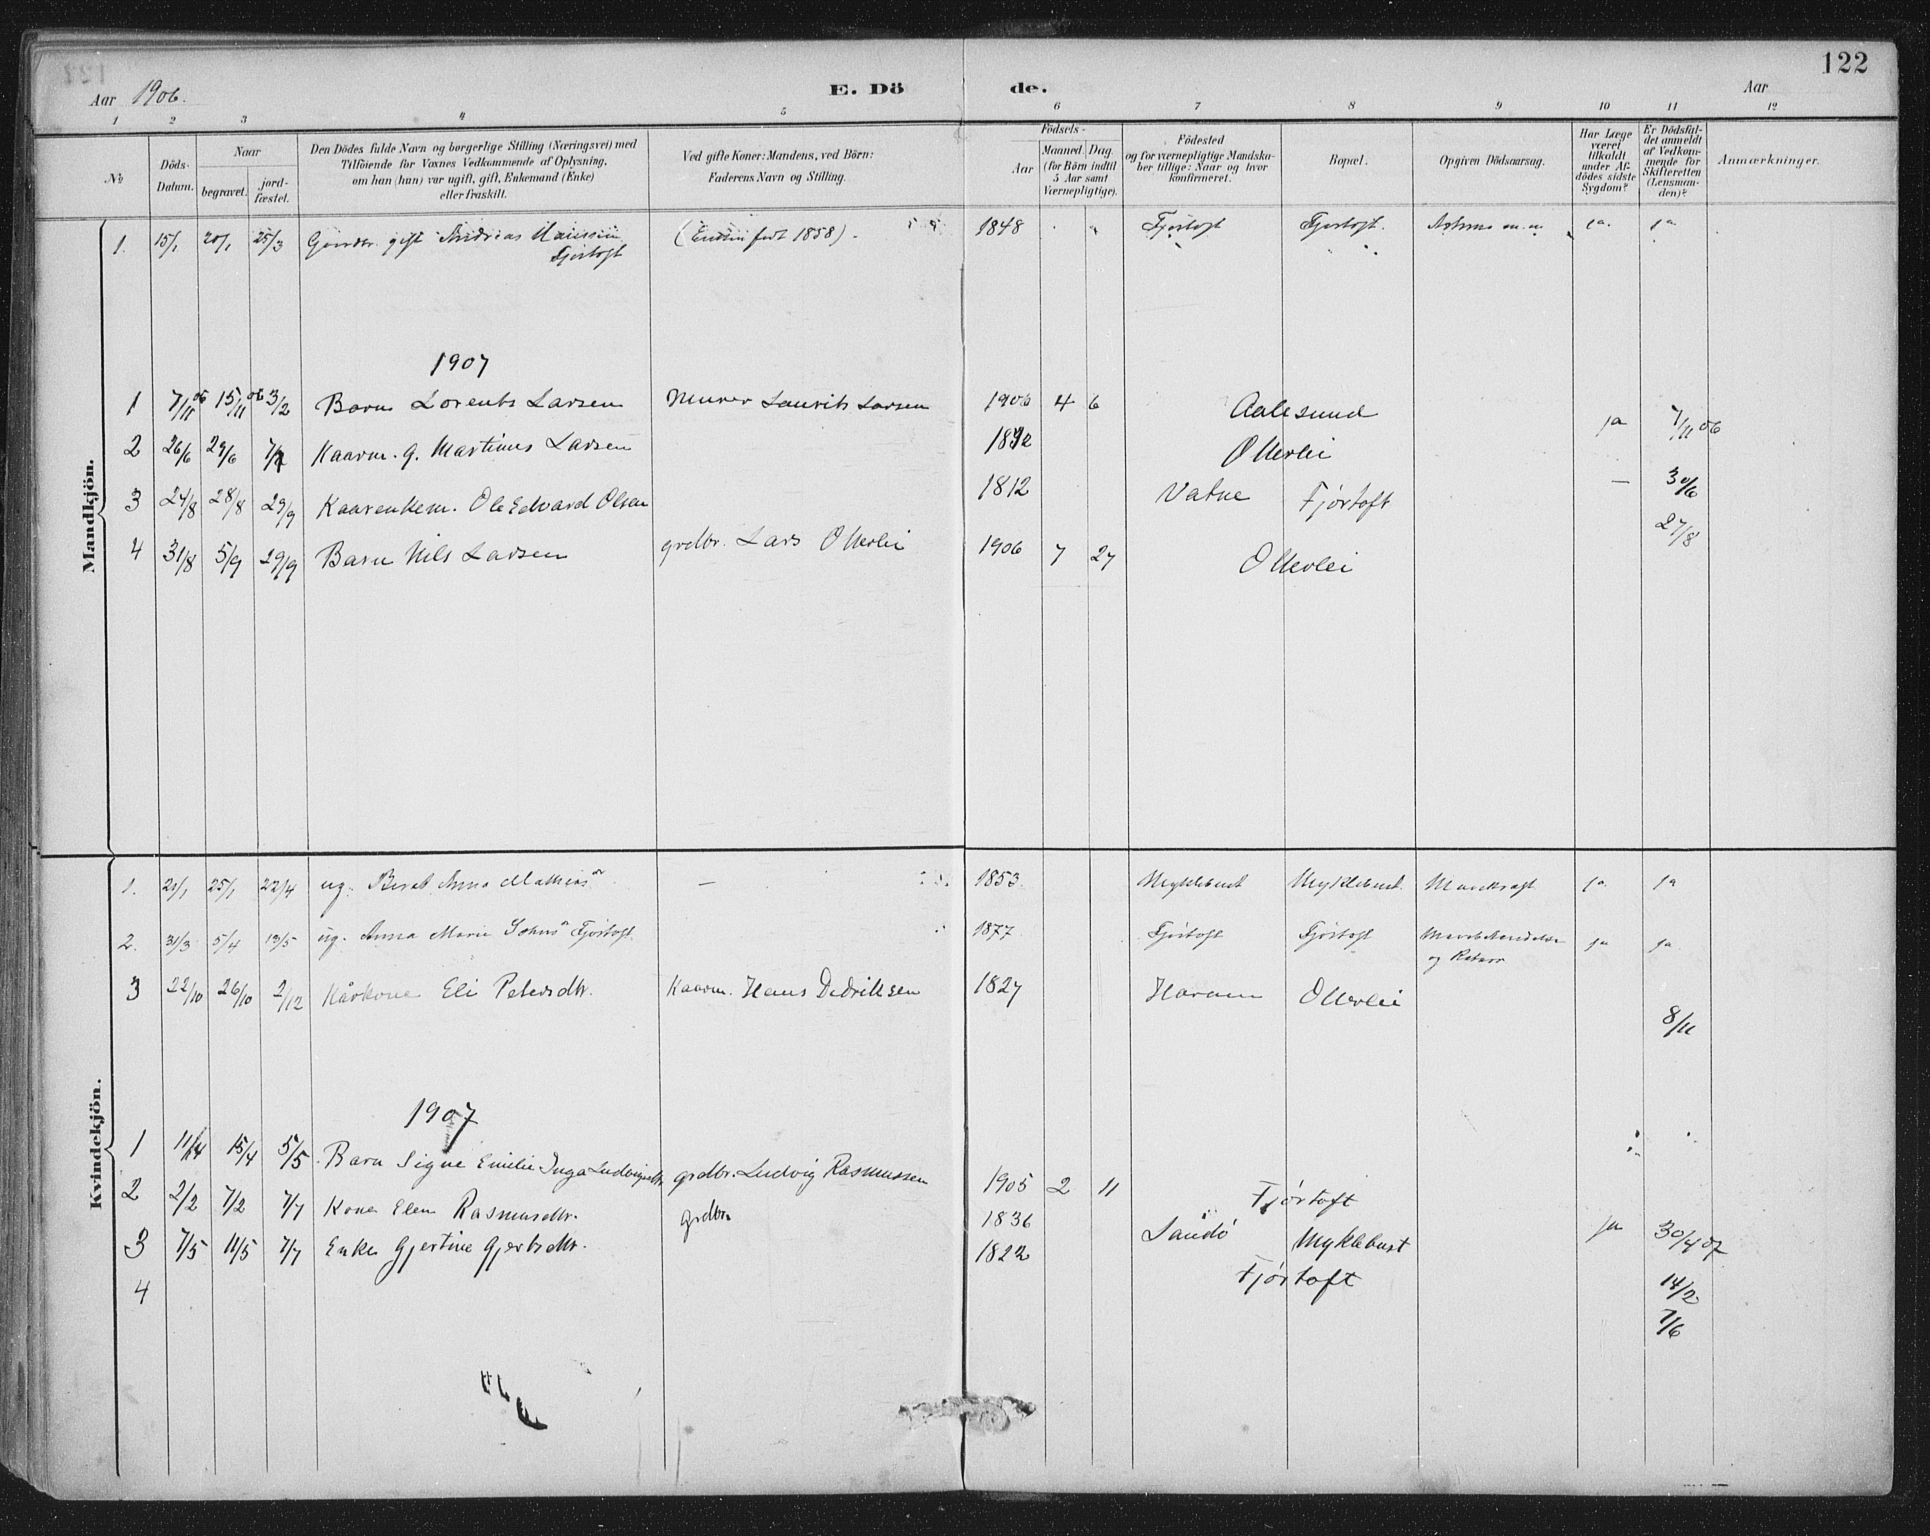 122
Aar 1906. E. Dö de. Aar
1 2 3 4 5 6 7 8 9 10 11 12
№
Döds-Datum.
Naar
begravet.
jord-fæstet.
Den Dödes fulde Navn og borgerlige Stilling (Næringsvei) med
Tilföiende for Voxnes Vedkommende af Oplysning,
om han (hun) var ugift, gift, Enkemand (Enke)
eller fraskilt.
Ved gifte Koner: Mandens, ved Börn:
Faderens Navn og Stilling.
Födsels-
Aar
Maaned. Dag.
(for Börn indtil
5 Aar samt
Værnepligtige).
Födested
og for værnepligtige Mandska-
ber tillige: Naar og hvor
konfirmeret.
Bopæl.
Opgiven Dödsaarsag.
Har Læge
været
tilkaldt
under Af-
dödes sidste
Sygdom?
Er Dödsfal-
det anmeldt
af Vedkom-
mende for
Skifteretten
(Lensman-
den)?
Anmærkninger.
Mandkjön.
1. 15/1 20/1 25/3 gift Andreas Hansen ( födt 1858). 1848 Fjörtoft Fjörtoft. m.m. ja ja
Fjörtoft
1907
1 7/11 06 15/11 06 3/2 Barn Lorents Larsen Murer Laurits Larsen 1906 4 6 Aalesund ja 7/11 06
2 26/6 29/6 7/7 Kaarm. g. Martinus Larsen Otterlei — 30/6
3 24/8 28/8 29/9 Kaarenkem. Ole Edvard Olsen 1812 Vatne Fjørtoft 27/8
4 31/8 5/9 29/9 Barn Nils Larsen grdbr. Lars Otterlei 1906 7 27 Otterlei
Kvindekjön.
1. 21/1 25/1 22/4 ug. Berit Anna Mathias — 1853 Myklebust Myklebust. ja ja
2. 31/3 5/4 13/5 ug. Anna Marie Johns Fjörtoft 1877 Fjörtoft Fjörtoft ja ja
og
3 22/10 26/10 2/12 Kårkone Eli Petersdtr. Kaarm. Hans Didriksen 1827 Haram Otterlei 8/11
1907
1 11/4 15/4 5/5 Barn Signe Emilie Inga Ludvigsdtr. grdbr. Ludvig Rasmussen 1905 2 11 Fjørtoft ja 30/4 07
2 2/2 7/2 7/7 Kone Elen Rasmusdtr. grdbr. 1836 Sandö Myklebust 14/2
3 7/5 11/5 7/7 Enke Gjertine Gjertsdtr. 1822 Fjørtoft 7/6
4